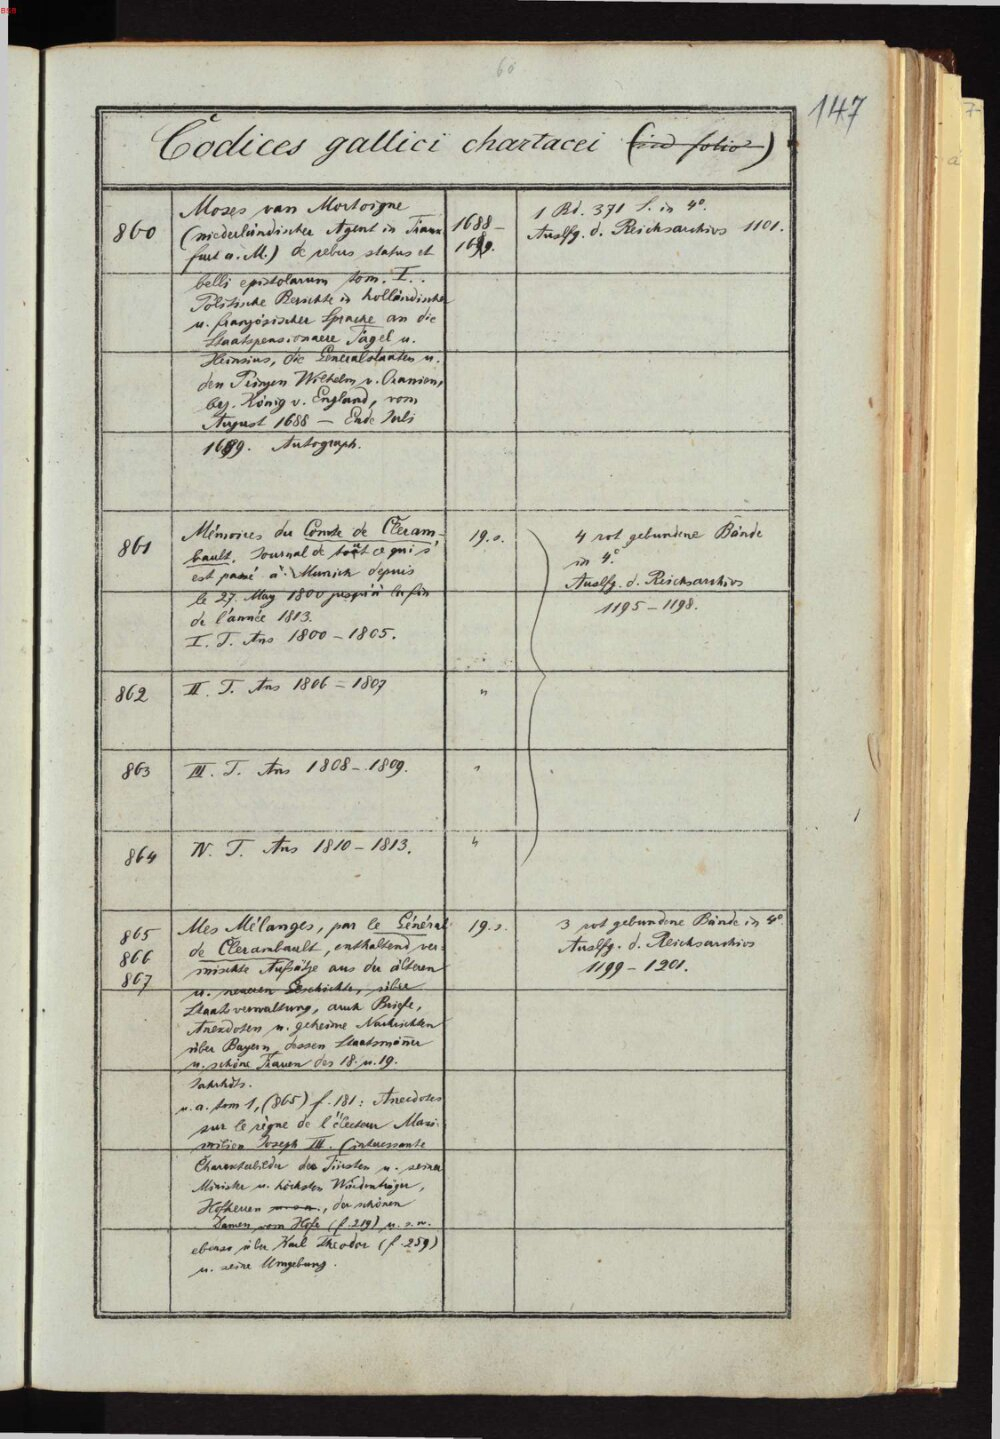 BSB
60
147
Codices gallici chartacei (in folio)
860
Moses van Mortoigne
(niederländischer Agent in Frank
furt a. M.) de rebus status et
belli epistolarum tom. I..
Politische Berichte in holländischer
u. französischer Sprache an die
Staatspensionaere Fagel u.
Heinsius, die Generalstaaten u.
den Prinzen Wilhelm v. Oranien,
bez. König v. England, vom
August 1688 — Ende Juli
1699. Autograph.
1688 –
1699.
1 Bd. 371 f. in 4°.
Auslfg. d. Reichsarchivs 1101.
861
Mémoires du Comte de Cleram-
bault. Journal de tout ce qui s'
est passé à Munich depuis
le 27. May 1800 jusqu'à la fin
de l'année 1813.
I. T. Ans 1800 – 1805.
19. s.
4 rot gebundene Bände
in 4°
Auslfg. d. Reichsarchivs
1195 – 1198.
862
II. T. Ans 1806 – 1807
"
863
III. T. Ans 1808 – 1809.
"
864
IV. T. Ans 1810 – 1813.
"
865
866
867
Mes Mélanges, par le Général
de Clerambault, enthaltend ver-
mischte Aufsätze aus der älteren
u. neueren Geschichte, über
Staatsverwaltung, auch Briefe,
Anekdoten u. geheime Nachrichten
über Bayern, dessen Staatsmänner
u. schöne Frauen des 18. u. 19.
Jahrhdts.
u. a. tom 1, (865) f. 181: Anecdotes
sur le règne de l'électeur Maxi-
milien Joseph III. (interessante
Charakterbilder des Fürsten u. seiner
Minister u. höchsten Würdenträger,
Hofherren, der schönen
Damen vom Hofe (f. 219) u. s. w.
ebenso über Karl Theodor (f. 259)
u. seine Umgebung.
19. s.
3 rot gebundene Bände in 4°
Auslfg. d. Reichsarchivs
1199 – 1201.